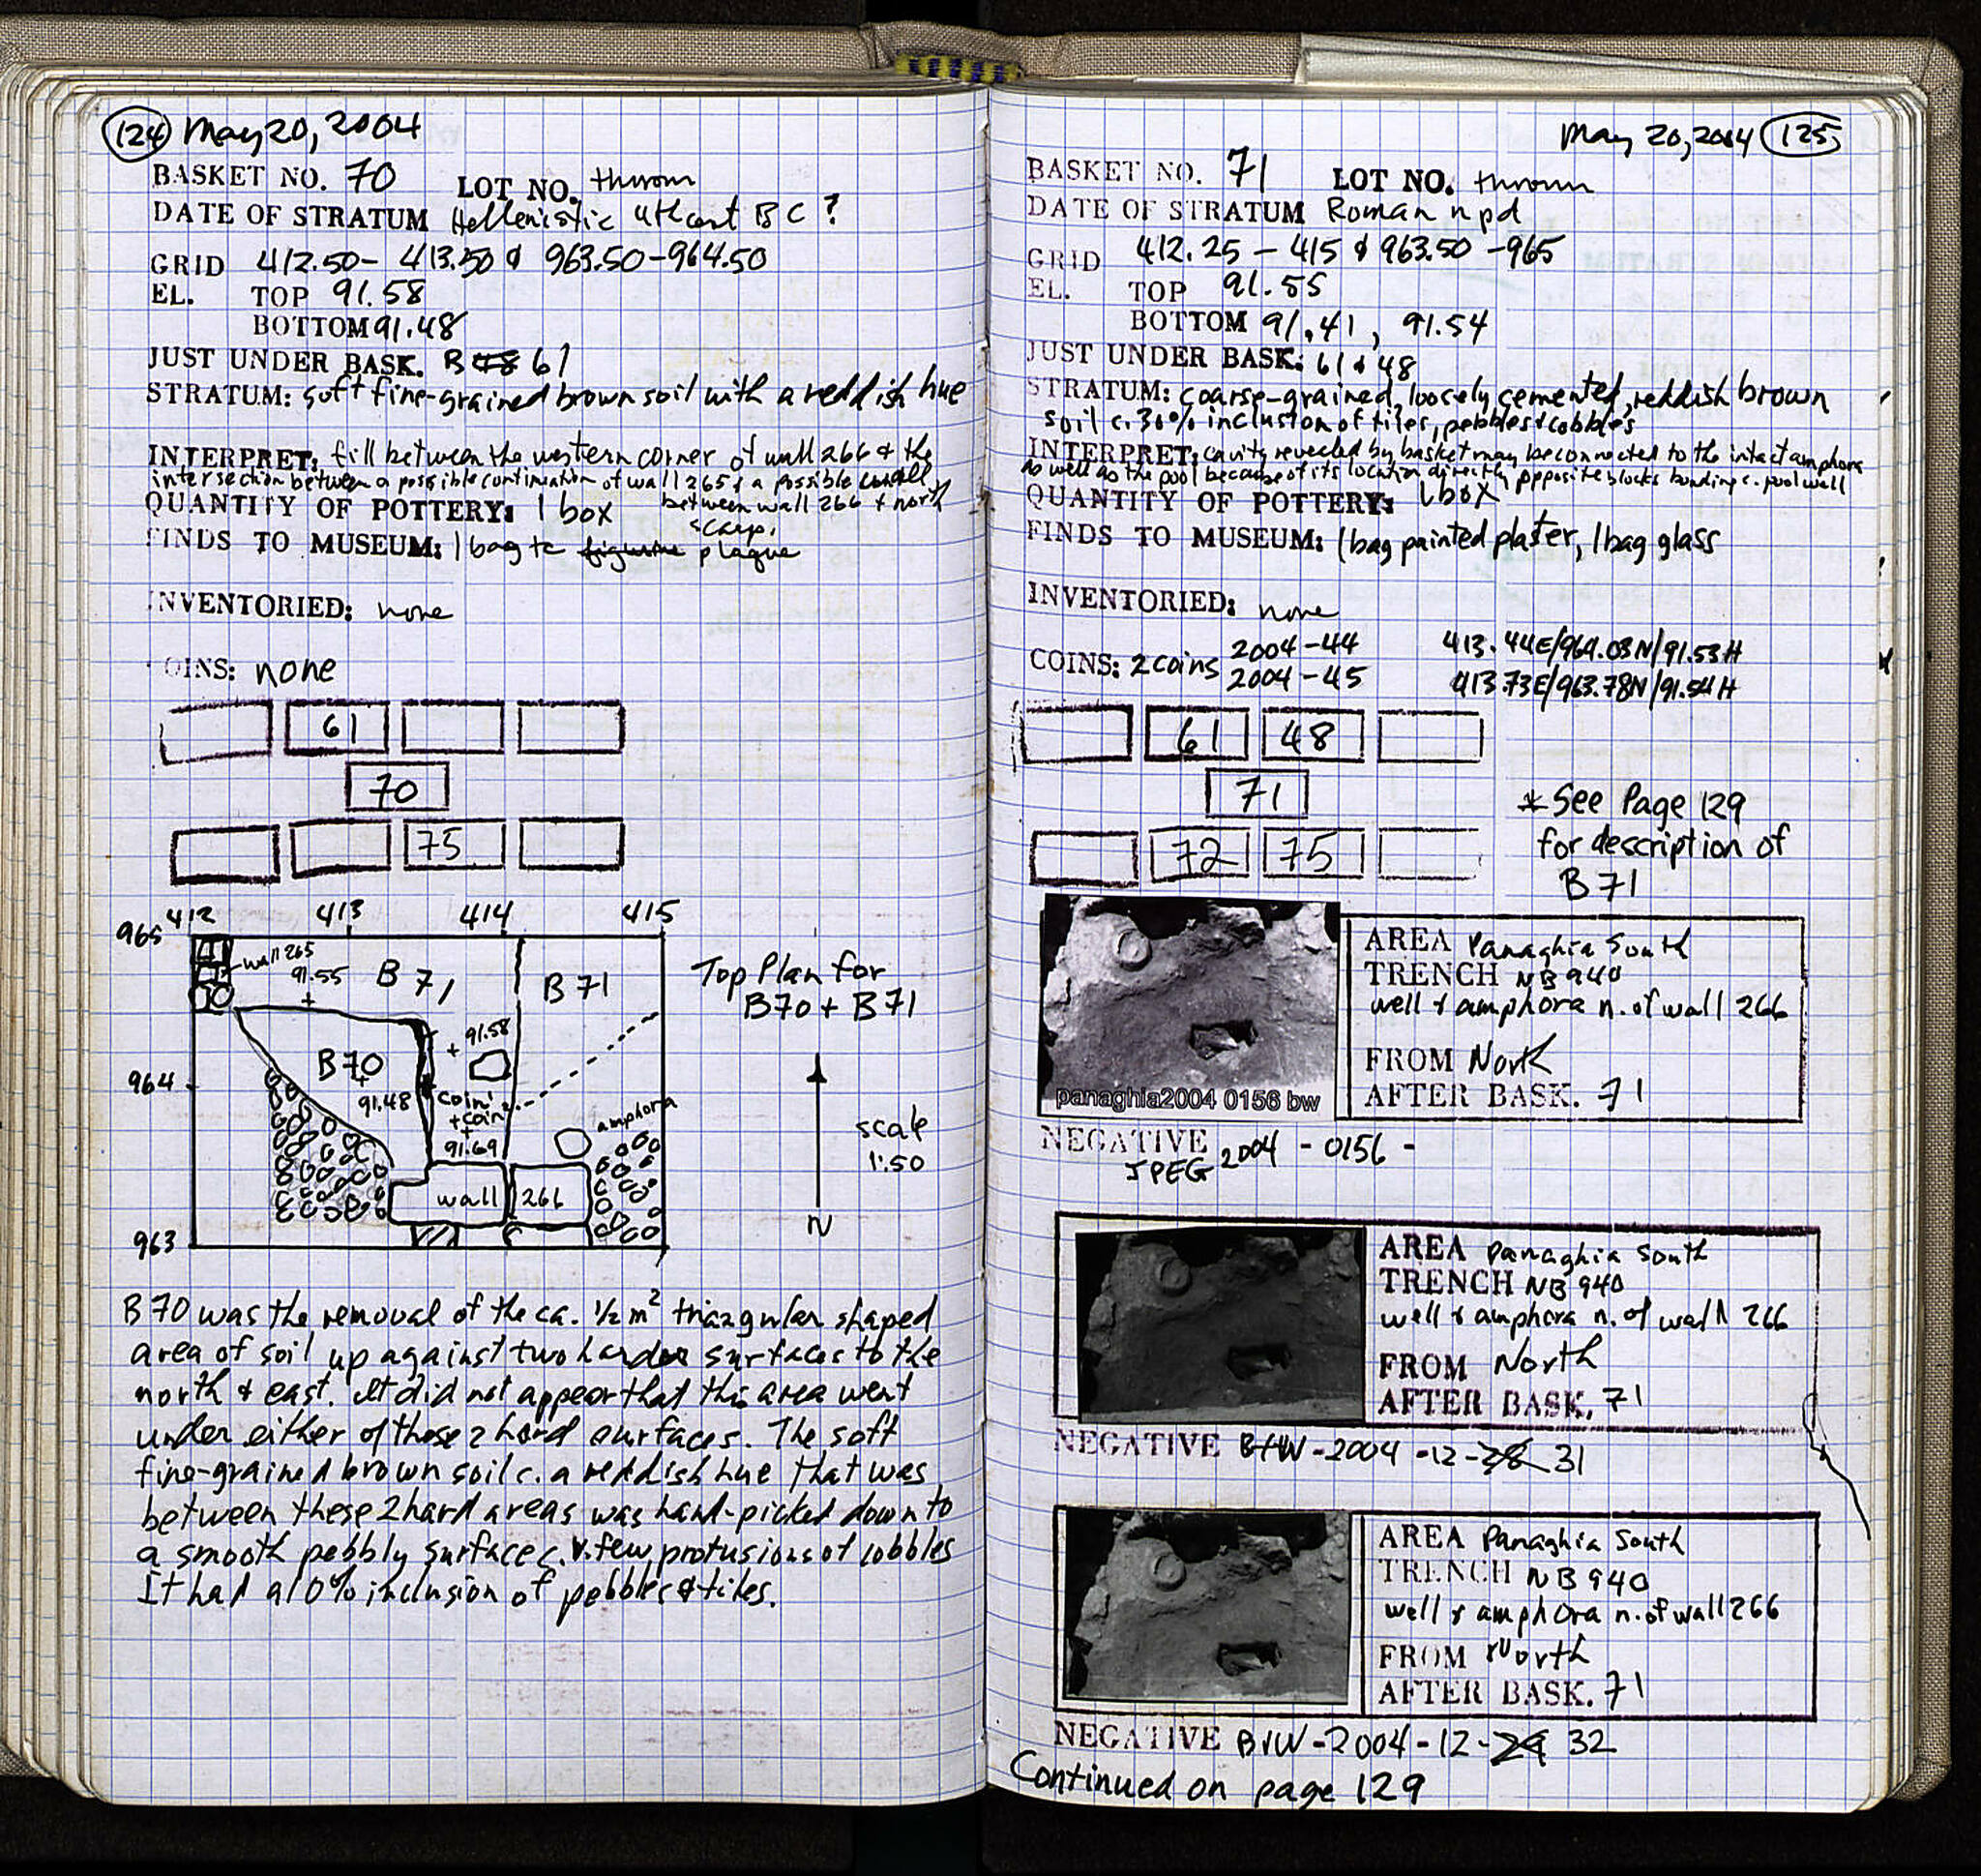 124 May 20, 2004
BASKET NO. 70 LOT NO. thrown
DATE OF STRATUM Hellenistic 4th cent BC?
GRID 412.50 - 413.50 & 963.50-964.50
EL. TOP 91.58
BOTTOM 91.48
JUST UNDER BASK. B 48 61
STRATUM: soft fine-grained brown soil with a reddish hue
INTERPRET: fill between the western corner of wall 266 & the
intersection between a possible continuation of wall 265 & a possible wall
between wall 266 & north
scarp.
QUANTITY OF POTTERY: 1 box
FINDS TO MUSEUM: 1 bag tc figurine plaque
INVENTORIED: none
OINS: none
61
70
75
412 413 414 415
965
wall 265
91.55
B 71
B 71
Top Plan for
B70 + B71
91.58
B 70
964
91.48
coin
coin
amphora
91.69
scale
1:50
wall 266
963
N
B 70 was the removal of the ca. ½ m² triangular shaped
area of soil up against two harder surfaces to the
north & east. It did not appear that this area went
under either of these 2 hard surfaces. The soft
fine-grained brown soil c. a reddish hue that was
between these 2 hard areas was hand-picked down to
a smooth pebbly surface c. v. few protusions of cobbles
It had a 10% inclusion of pebbles & tiles.
May 20, 2004 125
BASKET NO. 71 LOT NO. thrown
DATE OF STRATUM Roman npd
GRID 412.25 - 415 & 963.50 - 965
EL. TOP 91.55
BOTTOM 91.41, 91.54
JUST UNDER BASK: 61 & 48
STRATUM: coarse-grained, loosely cemented, reddish brown
soil c. 30% inclusion of tiles, pebbles & cobbles
INTERPRET: cavity revealed by basket may be connected to the intact amphora
as well as the pool because of its location directly opposite blocks bonding c. pool wall
QUANTITY OF POTTERY: 1 box
FINDS TO MUSEUM: 1 bag painted plaster, 1 bag glass
INVENTORIED: none
COINS: 2 coins 2004-44 413.44E/964.03N/91.53H
2004-45 413.73E/963.78N/91.54H
61 48
71
72 75
* See Page 129
for description of
B 71
panaghia2004 0156 bw
AREA Panaghia South
TRENCH NB 940
well & amphora n. of wall 266
FROM North
AFTER BASK. 71
NEGATIVE
JPEG 2004 - 0156 -
AREA Panaghia South
TRENCH NB 940
well & amphora n. of wall 266
FROM North
AFTER BASK. 71
NEGATIVE B+W-2004-12-28 31
AREA Panaghia South
TRENCH NB 940
well & amphora n. of wall 266
FROM North
AFTER BASK. 71
NEGATIVE B+W-2004-12-29 32
Continued on page 129